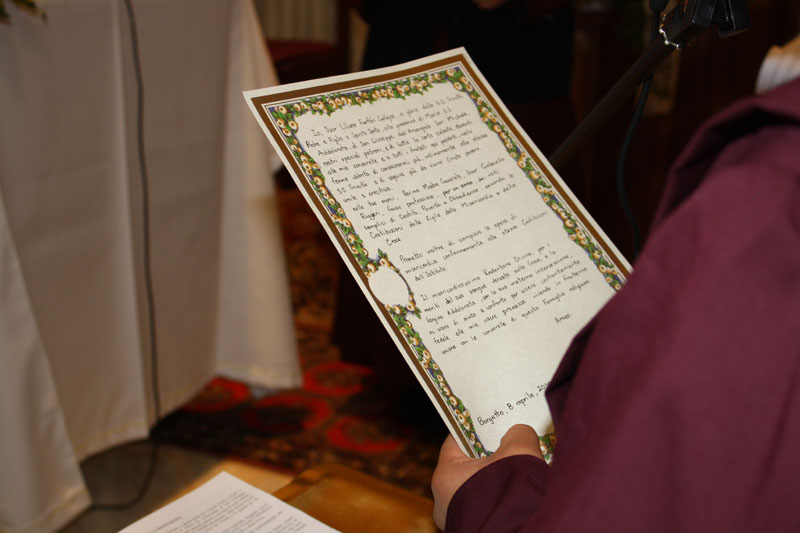 Io, Suor Liliana Fortin Calegar, a gloria della S.S. Trinità
Padre e Figlio e Spirito Santo, alla presenza di Maria S.S.
Addolorata, di San Giuseppe, dell'Arcangelo San Michele,
nostri speciali patroni, e di tutta la corte celeste, davanti
alle mie consorelle e a tutti i fratelli qui presenti, nella
ferma volontà di consacrarmi più intimamente alla stessa
SS. Trinità e di seguire più da vicino Cristo povero,
umile e crocifisso,
nelle tue mani, Rev.ma Madre Generale, Suor Gabriella
Ruggeri, faccio professione, per un anno, dei voti
semplici di Castità, Povertà e Obbedienza, secondo le
Costituzioni delle Figlie della Misericordia e della
Croce.
Prometto inoltre di compiere le opere di
misericordia conformemente alle stesse Costituzioni
dell'Istituto.
Il misericordiosissimo Redentore Divino, per i
meriti del suo sangue versato sulla Croce, e la
Vergine Addolorata, con la sua materna intercessione,
mi siano di aiuto e conforto per essere costantemente
fedele alle mie sacre promesse vivendo in fraterna
unione con le consorelle di questa Famiglia religiosa.
Amen.
Borgetto, 8 aprile, 20